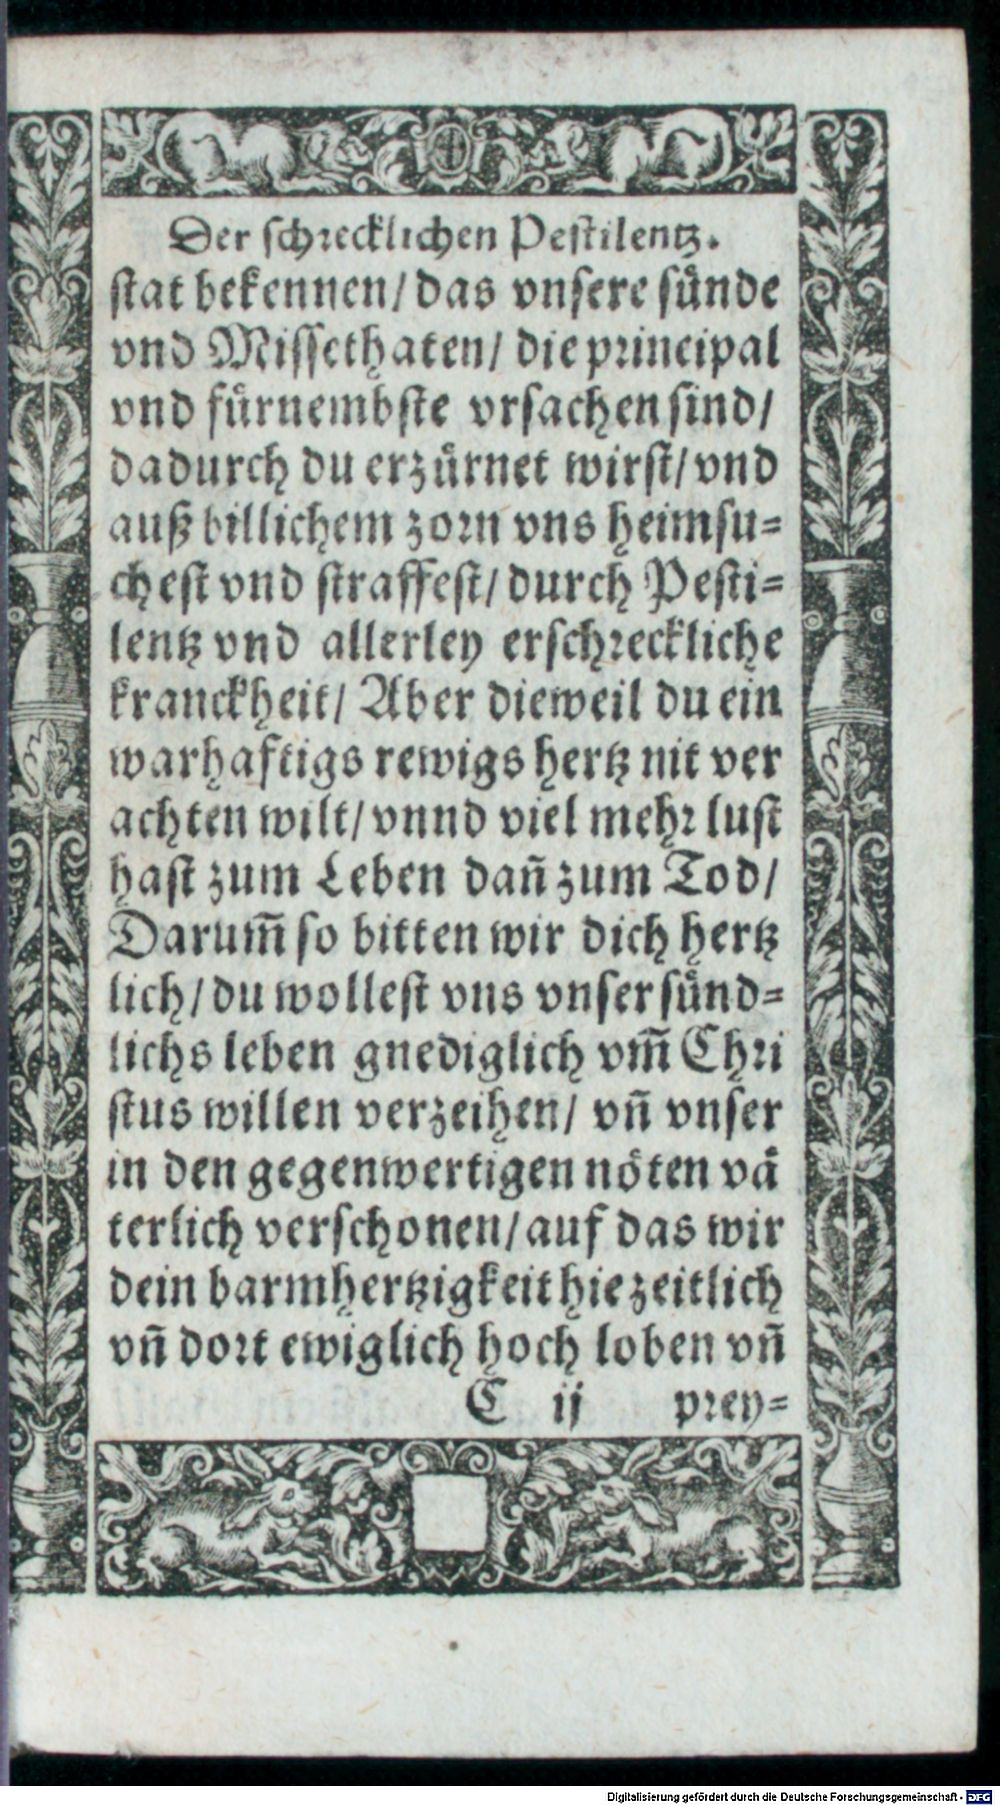 Der schrecklichen Pestilentz.
stat bekennen/ das vnsere sünde
vnd Missethaten/ die principal
vnd fürnembste vrsachen sind/
dadurch du erzürnet wirst/ vnd
auß billichem zorn vns heimsu=
chest vnd straffest/ durch Pesti=
lentz vnd allerley erschreckliche
kranckheit/ Aber dieweil du ein
warhaftigs rewigs hertz nit ver
achten wilt/ vnnd viel mehr lust
hast zum Leben dañ zum Tod/
Darum̃ so bitten wir dich hertz
lich/ du wollest vns vnser sünd=
lichs leben gnediglich vm̃ Chri
stus willen verzeihen/ vñ vnser
in den gegenwertigen nöten vä
terlich verschonen/ auf das wir
dein barmhertzigkeit hie zeitlich
vñ dort ewiglich hoch loben vñ
C ij prey=
Digitalisierung gefördert durch die Deutsche Forschungsgemeinschaft - DFG